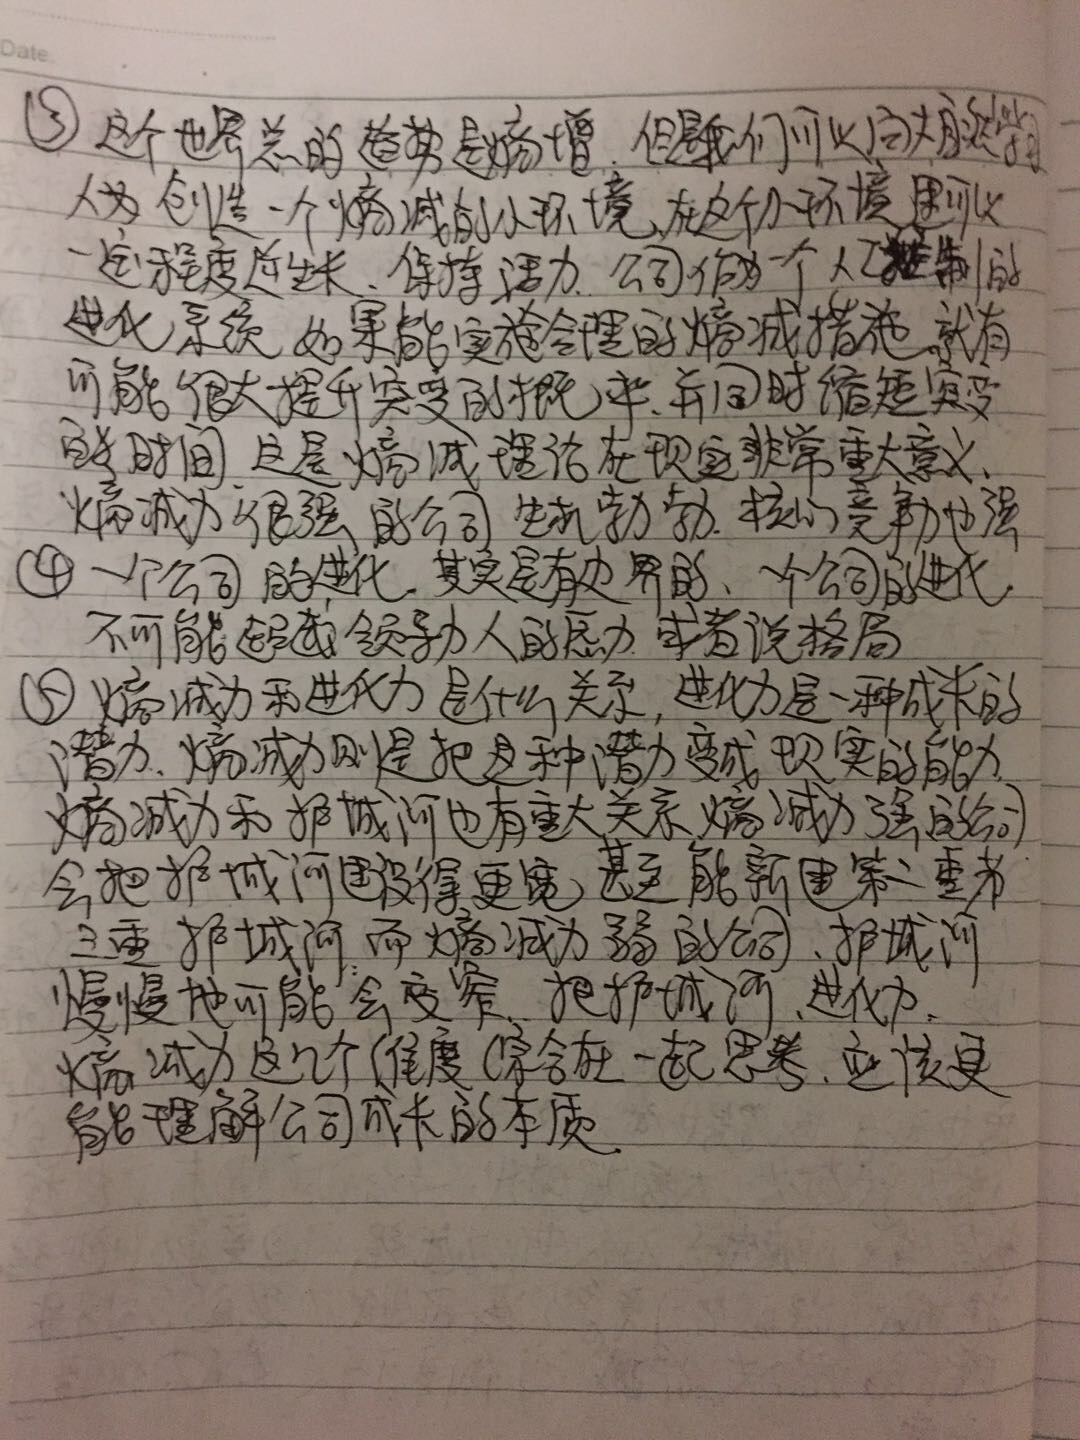 Date.
③ 这个世界总的趋势是熵增.但是我们可以向大自然学习
人为创造一个熵减的小环境,在这个小环境里可以
一定程度逆生长、保持活力.公司作为一个人工控制的
进化系统 如果能实施合理的熵减措施,就有
可能很大提升突变的概率.并同时缩短突变
的时间.这是熵减理论在现实非常重大意义、
熵减力很强的公司 生机勃勃.核心竞争力也强
④ 一个公司的进化.其实是有边界的、一个公司的进化
不可能超越领导人的愿力 或者说格局
⑤ 熵减力和进化力是什么关系,进化力是一种成长的
潜力.熵减力则是把这种潜力变成现实的能力
熵减力和护城河也有重大关系 熵减力强的公司
会把护城河建设得更宽,甚至能新建第二重 者
三重 护城河.而熵减力弱的公司、护城河
慢慢地可能会变窄.把护城河、进化力、
熵减力这几个维度综合在一起思考.应该更
能理解公司成长的本质.